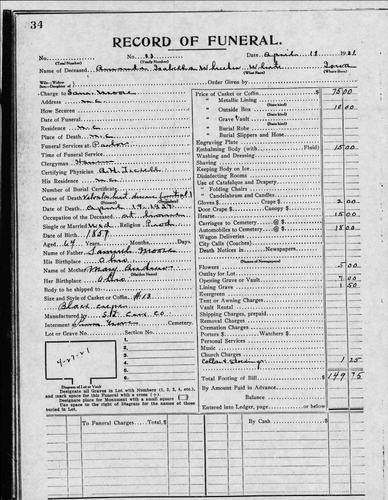 34
RECORD OF FUNERAL.
No. 33 Date, April 19 1921
(Total Number) (Yearly Number)
Name of Deceased Amanda Isabitha Wheeler White Iowa
(What Race) (Where Born)
Order Given by
Charge to Sam Moore
Address M.C.
How Secured
Date of Funeral
Residence M.C.
Place of Death M.C.
Funeral Services at Parlor
Time of Funeral Service
Clergyman
Certifying Physician
His Residence M.C.
Number of Burial Certificate
Cause of Death
Date of Death April 19, 1921
Occupation of the Deceased
Single or Married Wed Religion Prod
Date of Birth 1857
Aged 64 Years Months Days.
Name of Father Samuel Moore
His Birthplace Ohio
Name of Mother Mary
(Maiden Name)
Her Birthplace Ohio
Body to be shipped to
Size and Style of Casket or Coffin #13
Black
Manufactured by
Interment Cemetery.
Lot or Grave No. Section No.
4-27-21
Diagram of Lot or Vault
Designate all Graves in Lot with Numbers (1, 2, 3, 4, etc.),
and mark space for this Funeral with a cross (+).
Designate place for Monument with a small square
Use space to right of Diagram for the names of those
buried in Lot.
Price of Casket or Coffin $ 75 00
" Metallic Lining
" Outside Box 10 00
" Grave Vault
" Burial Robe
" Burial Slippers and Hose
Engraving Plate
Embalming Body (with Fluid) 15 00
Washing and Dressing
Shaving
Keeping Body on Ice
Disinfecting Rooms
Use of Catafalque and Drapery
" Folding Chairs
" Candelabrum and Candles
Gloves $ Crape $ 2 00
Door Crape Canopy $
Hearse 15 00
Carriages to Cemetery @ $
Automobiles to Cemetery @ $ 18 00
Wagon Deliveries
City Calls (Coaches)
Death Notices in Newspapers
Flowers 5 00
Outlay for Lot
Opening Grave or Vault 7 00
Lining Grave 1 50
Evergreen
Tent or Awning Charges
Vault Rental
Shipping Charges, prepaid
Removal Charges
Cremation Charges
Porters $ Watchers $
Personal Services
Music
Church Charges
Collar & Stockings 1 25
Total Footing of Bill $ 149 75
By Amount Paid in Advance
Balance
Entered into Ledger, page or below
To Funeral Charges Total $ By Cash